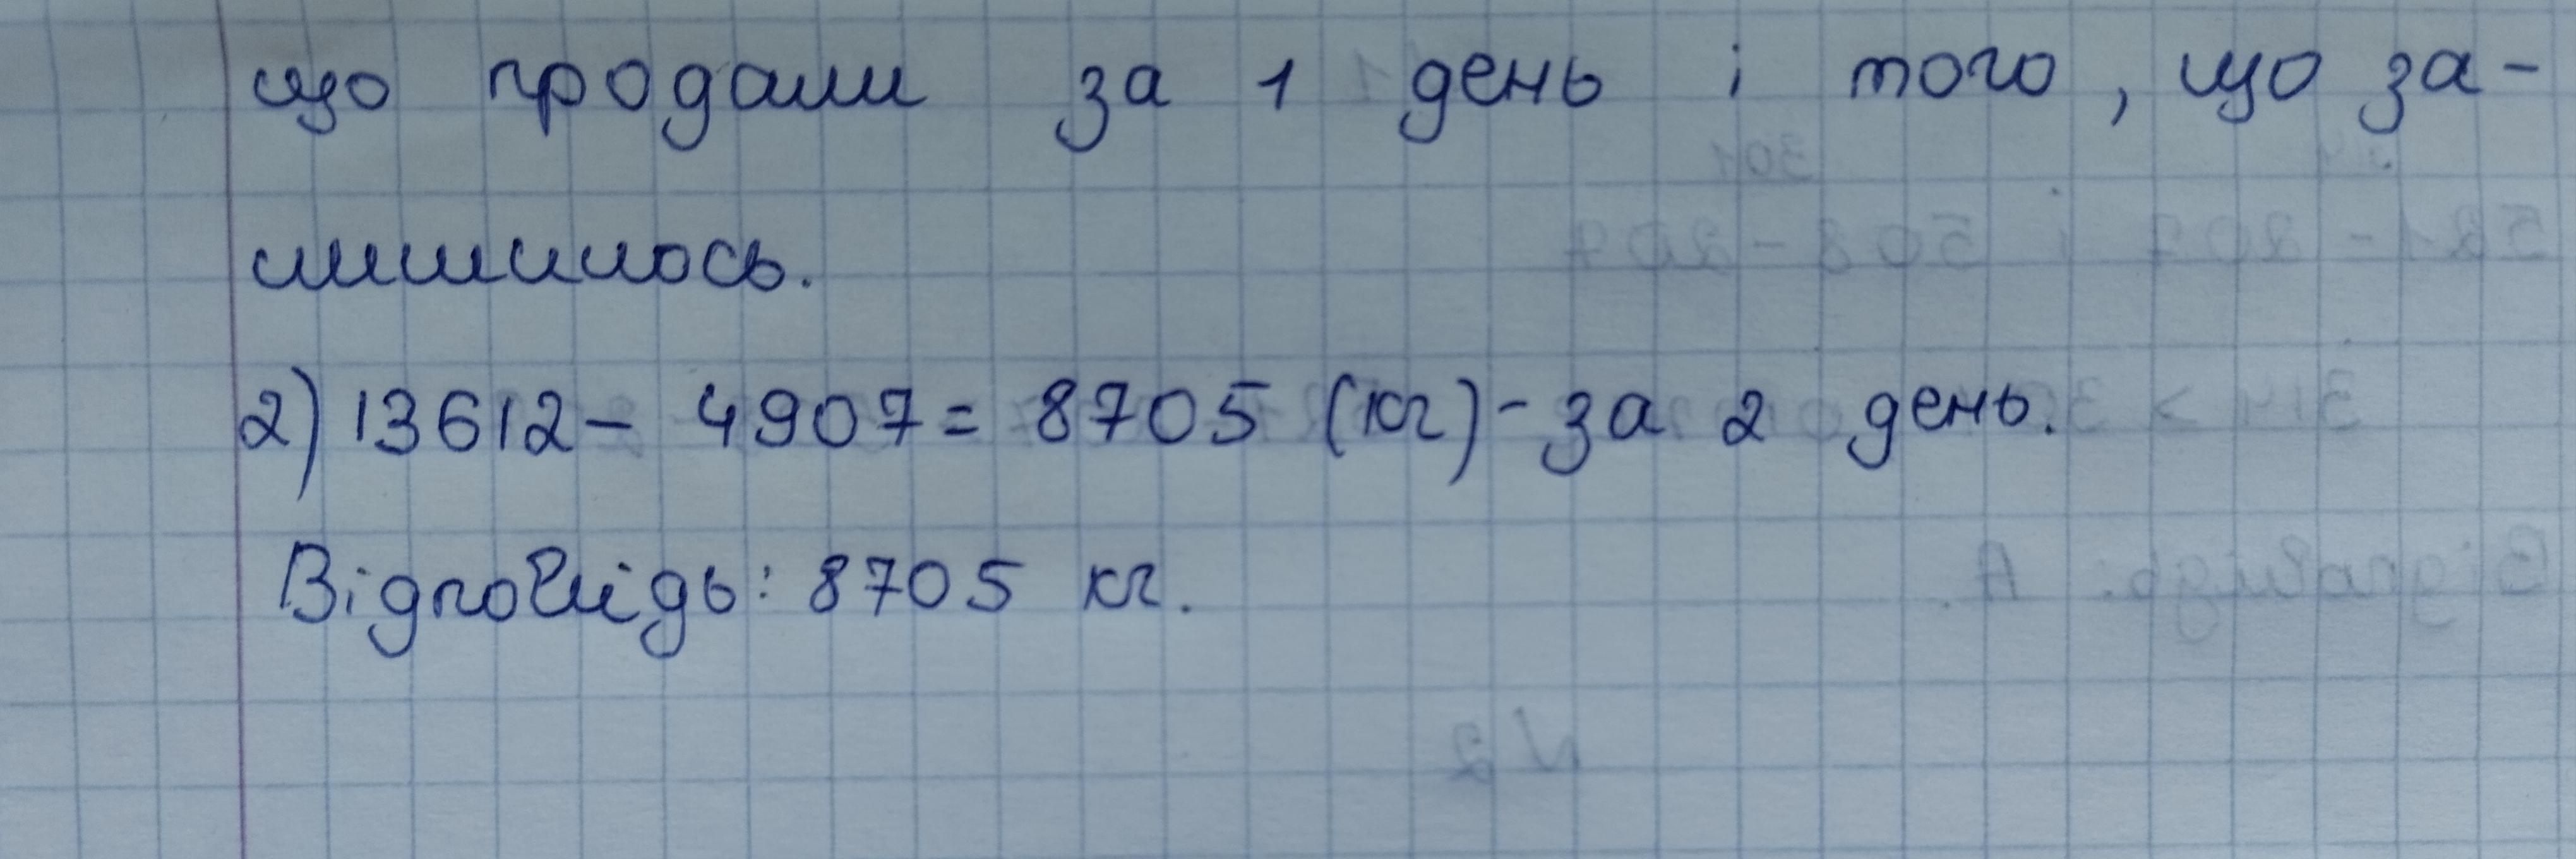 що продали за 1 день і того, що за-
лишилось.
2) 13612 - 4907 = 8705 (кг) - за 2 день.
Відповідь: 8705 кг.